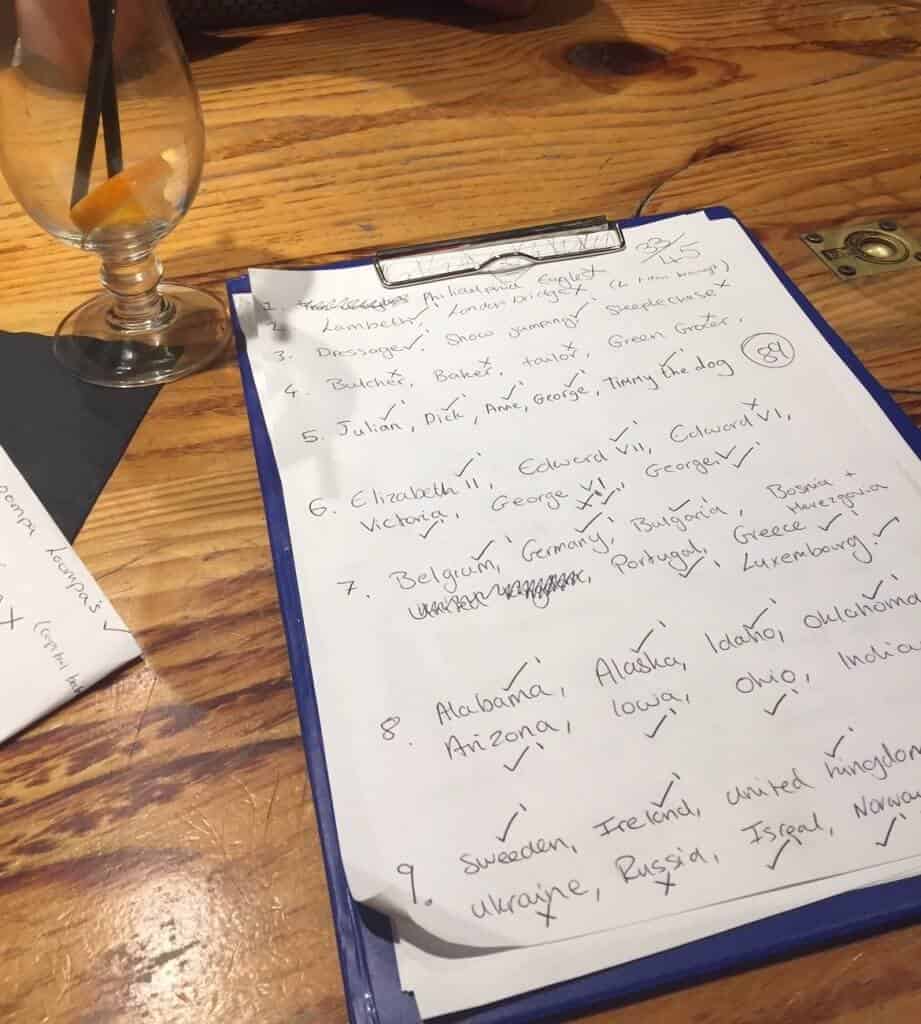 33/45
1. Philidelphia Eagles x
2. Lambeth ✓, London bridge x (
3. Dressage ✓, Show jumping ✓, Steeplechase x
4. Butcher x, Baker x, tailor x, Green Grocer x,
89
5. Julian ✓, Dick ✓, Anne ✓, George ✓, Timmy the dog ✓
6. Elizabeth II ✓, Edward VII ✓, Edward VI x,
Victoria ✓, George VI, George V ✓
7. Belgium ✓, Germany ✓, Bulgaria ✓, Bosnia +
Herezgovia
Portugal ✓, Greece ✓, Luxembourg ✓
8. Alabama ✓, Alaska ✓, Idaho ✓, Oklahoma ✓
Arizona ✓, Iowa ✓, Ohio ✓, India
9. Sweeden ✓, Ireland ✓, United Kingdom ✓
Ukraine x, Russia x, Isreal ✓, Norway ✓
oompa Loompa's ✓
x
(capital